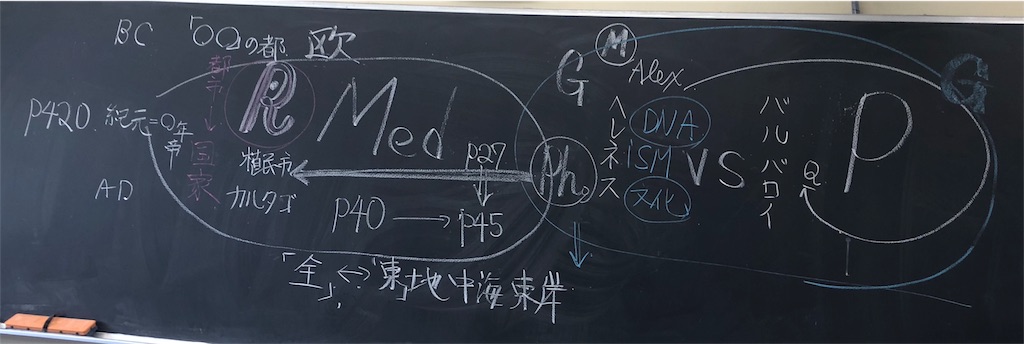 BC
「〇〇の都
欧
都→国家
R
Med
P420.紀元=0年
帝
AD
植民市
カルタゴ
P27
↓
P40→P45
「全」↔「東」地中海東岸
Ph。
G
M
Alex
ヘレネス
DNA
ISM
文化
VS
バルバロイ
Q
P
G